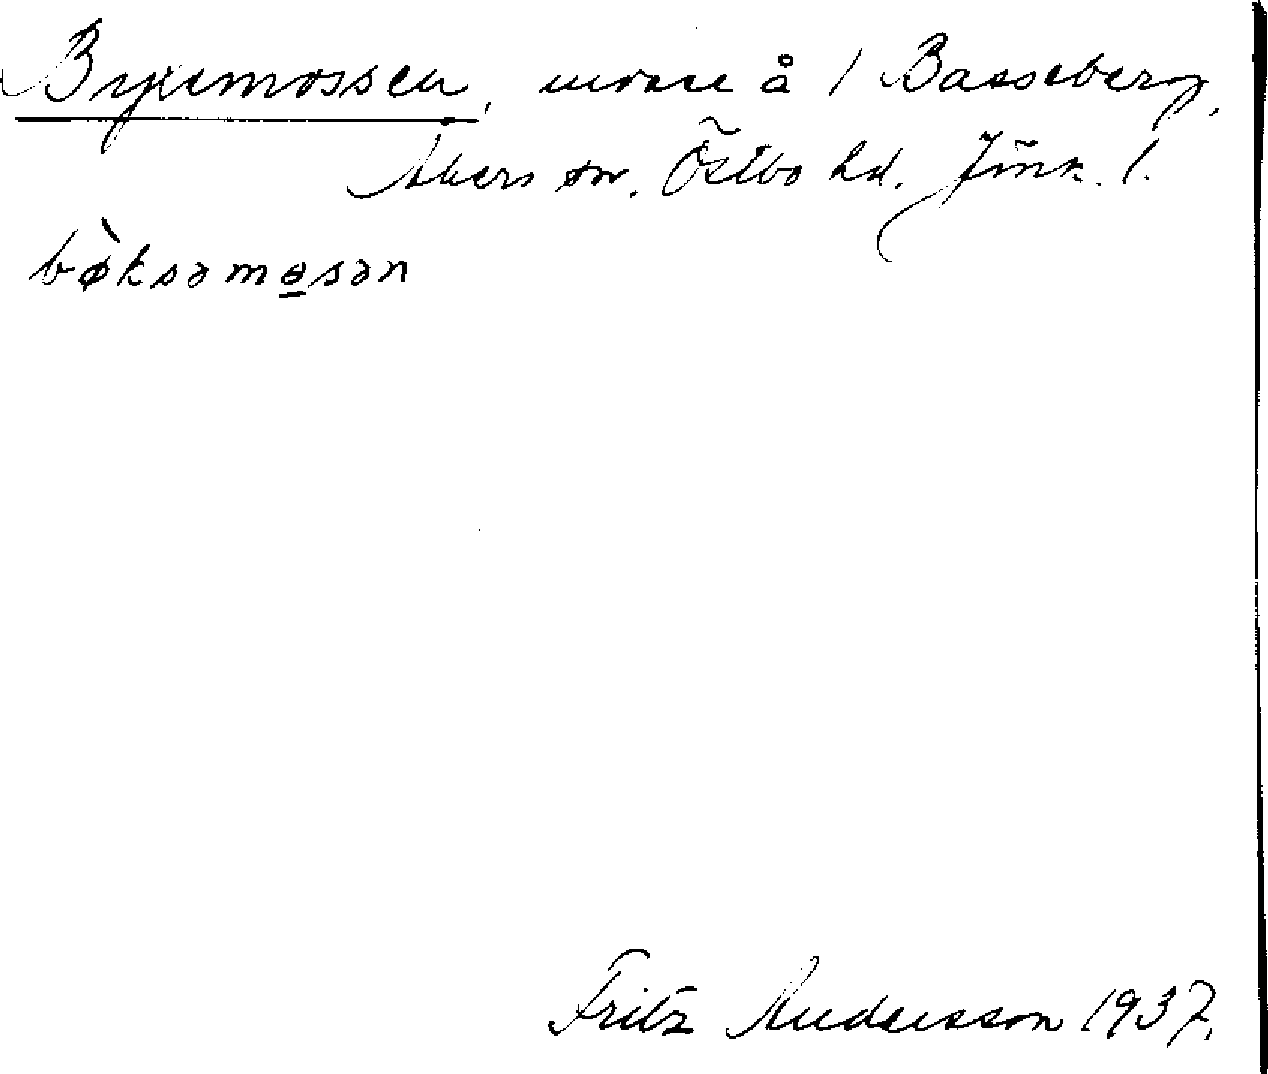 Byxemossen, mosse å 1 Basseberg,
Åkers sn. Östbo hd. Jönk. l.
bø̀ksəmɵ̲sən
Fritz Andersson 1937.